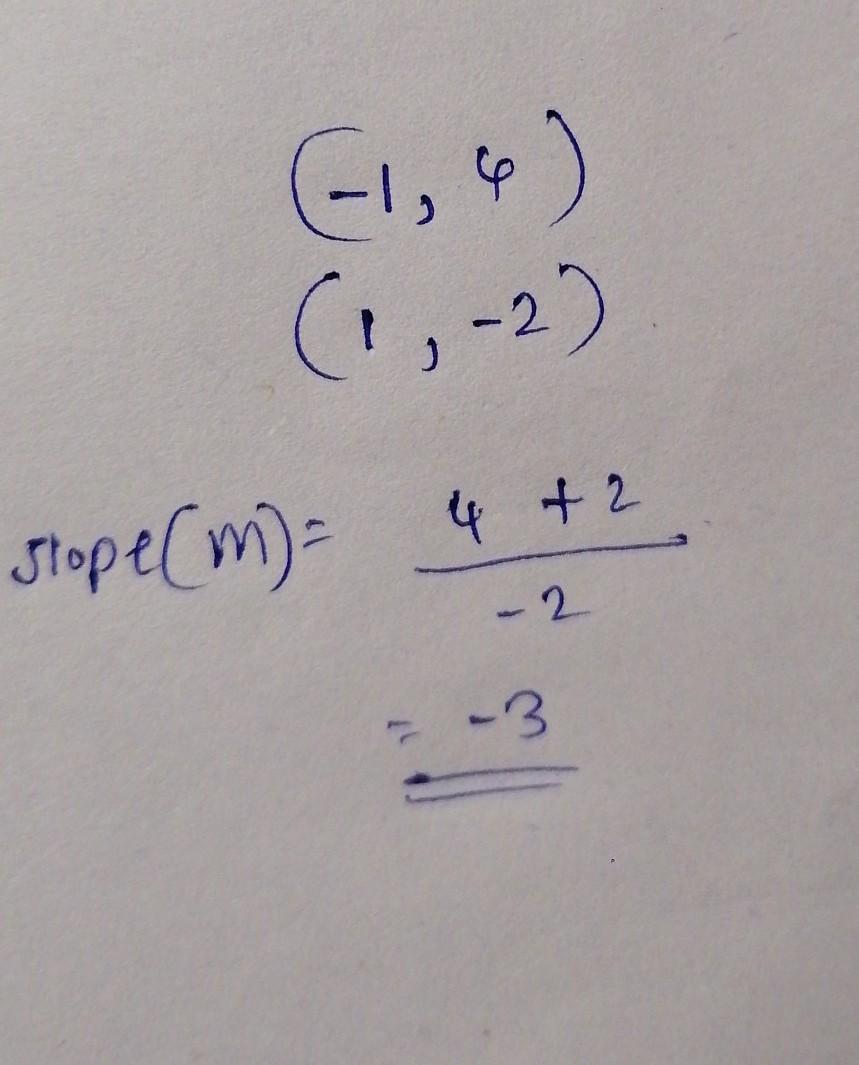 (-1, 4)
(1, -2)
slope(m)= 4 + 2
-2
= -3